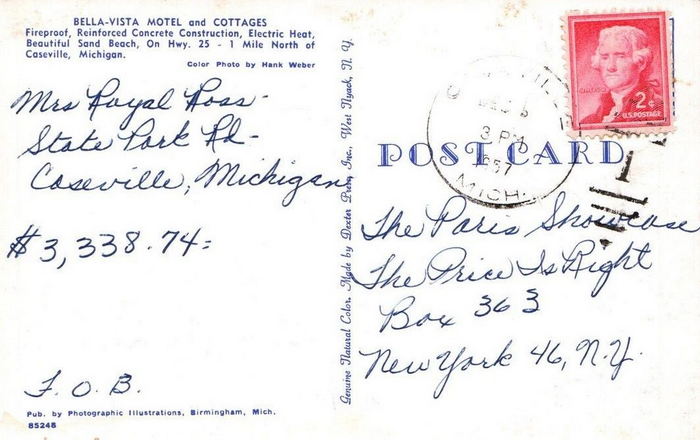 BELLA-VISTA MOTEL and COTTAGES
Fireproof, Reinforced Concrete Construction, Electric Heat,
Beautiful Sand Beach, On Hwy. 25 - 1 Mile North of
Caseville, Michigan.
Color Photo by Hank Weber
Mrs Royal Ross-
State Park Rd-
Caseville, Michigan
$3,338.74=
F.O.B.
Pub. by Photographic Illustrations, Birmingham, Mich.
85248
Genuine Natural Color. Made by Dexter Press, Inc., West Nyack, N. Y.
3 PM
1957
MICH.
2¢
U.S. POSTAGE
POST CARD
The Paris Showcase
The Price Is Right
Box 363
New York 46, N.Y.